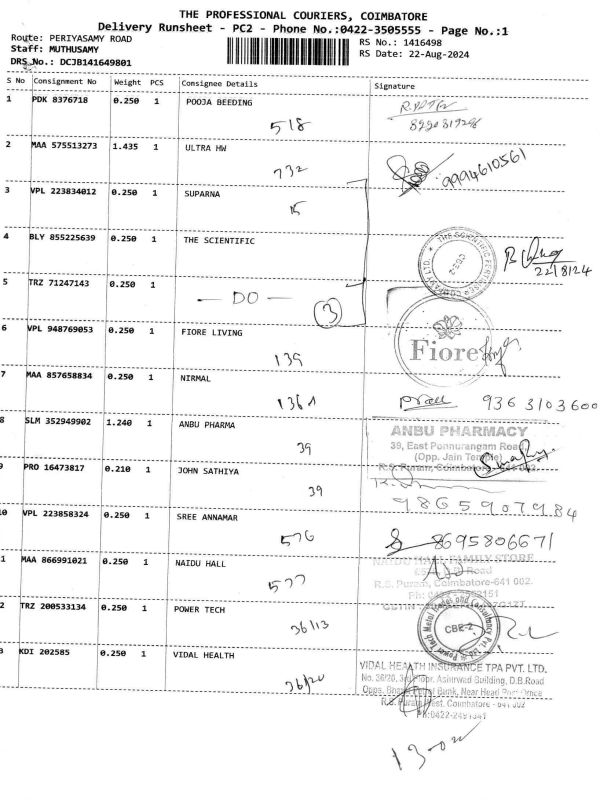 THE PROFESSIONAL COURIERS, COIMBATORE
Delivery Runsheet - PC2 - Phone No.:0422-3505555 - Page No.:1
Route: PERIYASAMY ROAD
Staff: MUTHUSAMY
DRS No.: DCJB141649801
RS No.: 1416498
RS Date: 22-Aug-2024
S No Consignment No Weight PCS Consignee Details Signature
1 PDK 8376718 0.250 1 POOJA BEEDING
518
2 MAA 575513273 1.435 1 ULTRA HW
732 9994610561
3 VPL 223834012 0.250 1 SUPARNA
15
4 BLY 855225639 0.250 1 THE SCIENTIFIC
THE SCIENTIFIC FERTILISER COMPANY LTD. CBE-2
22/8/24
5 TRZ 71247143 0.250 1
— DO — 3
6 VPL 948769053 0.250 1 FIORE LIVING
139 Fiore
7 MAA 857658834 0.250 1 NIRMAL
1361 9363103600
8 SLM 352949902 1.240 1 ANBU PHARMA
39
ANBU PHARMACY
39, East Ponnurangam Road,
(Opp. Jain Temple)
R.S. Puram, Coimbatore
9 PRO 16473817 0.210 1 JOHN SATHIYA
39 9865907984
0 VPL 223858324 0.250 1 SREE ANNAMAR
576 8695806671
1 MAA 866991021 0.250 1 NAIDU HALL
577
NAIDU HALL FAMILY STORE
Road
R.S. Puram, Coimbatore-641 002.
2 TRZ 200533134 0.250 1 POWER TECH
36/13 CBE-2
3 KDI 202585 0.250 1 VIDAL HEALTH
36/20
VIDAL HEALTH INSURANCE TPA PVT. LTD.
No. 36/20, 3rd Floor, Ashirwad Building, D.B.Road
Opp. Bank, Near Head Post Office
R.S. Puram West, Coimbatore - 641 002